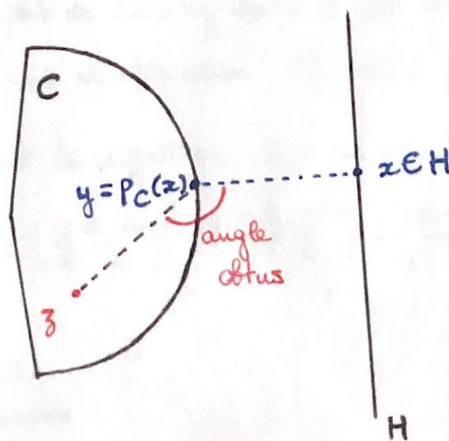 C
y = P_C(x)
x ∈ H
angle
obtus
z
H